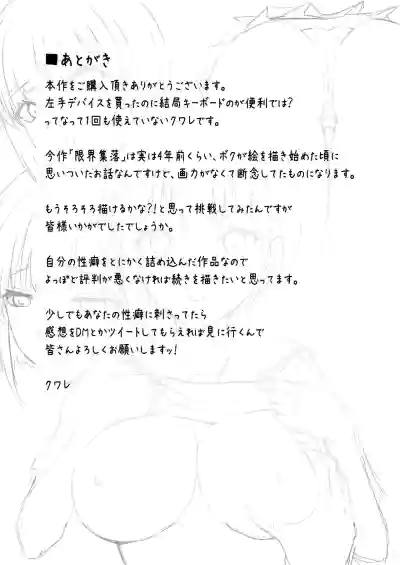 ■あとがき
本作をご購入頂きありがとうございます。
左手デバイスを買ったのに結局キーボードのが便利では?
ってなって1回も使えていないクワレです。
今作「限界集落」は実は4年前くらい、ボクが絵を描き始めた頃に
思いついたお話なんですけど、画力がなくて断念してたものになります。
もうそろそろ描けるかな?!と思って挑戦してみたんですが
皆様いかがでしたでしょうか。
自分の性癖をとにかく詰め込んだ作品なので
よっぽど評判が悪くなければ続きを描きたいと思ってます。
少しでもあなたの性癖に刺さってたら
感想をDMとかツイートしてもらえれば見に行くんで
皆さんよろしくお願いしますッ!
クワレ